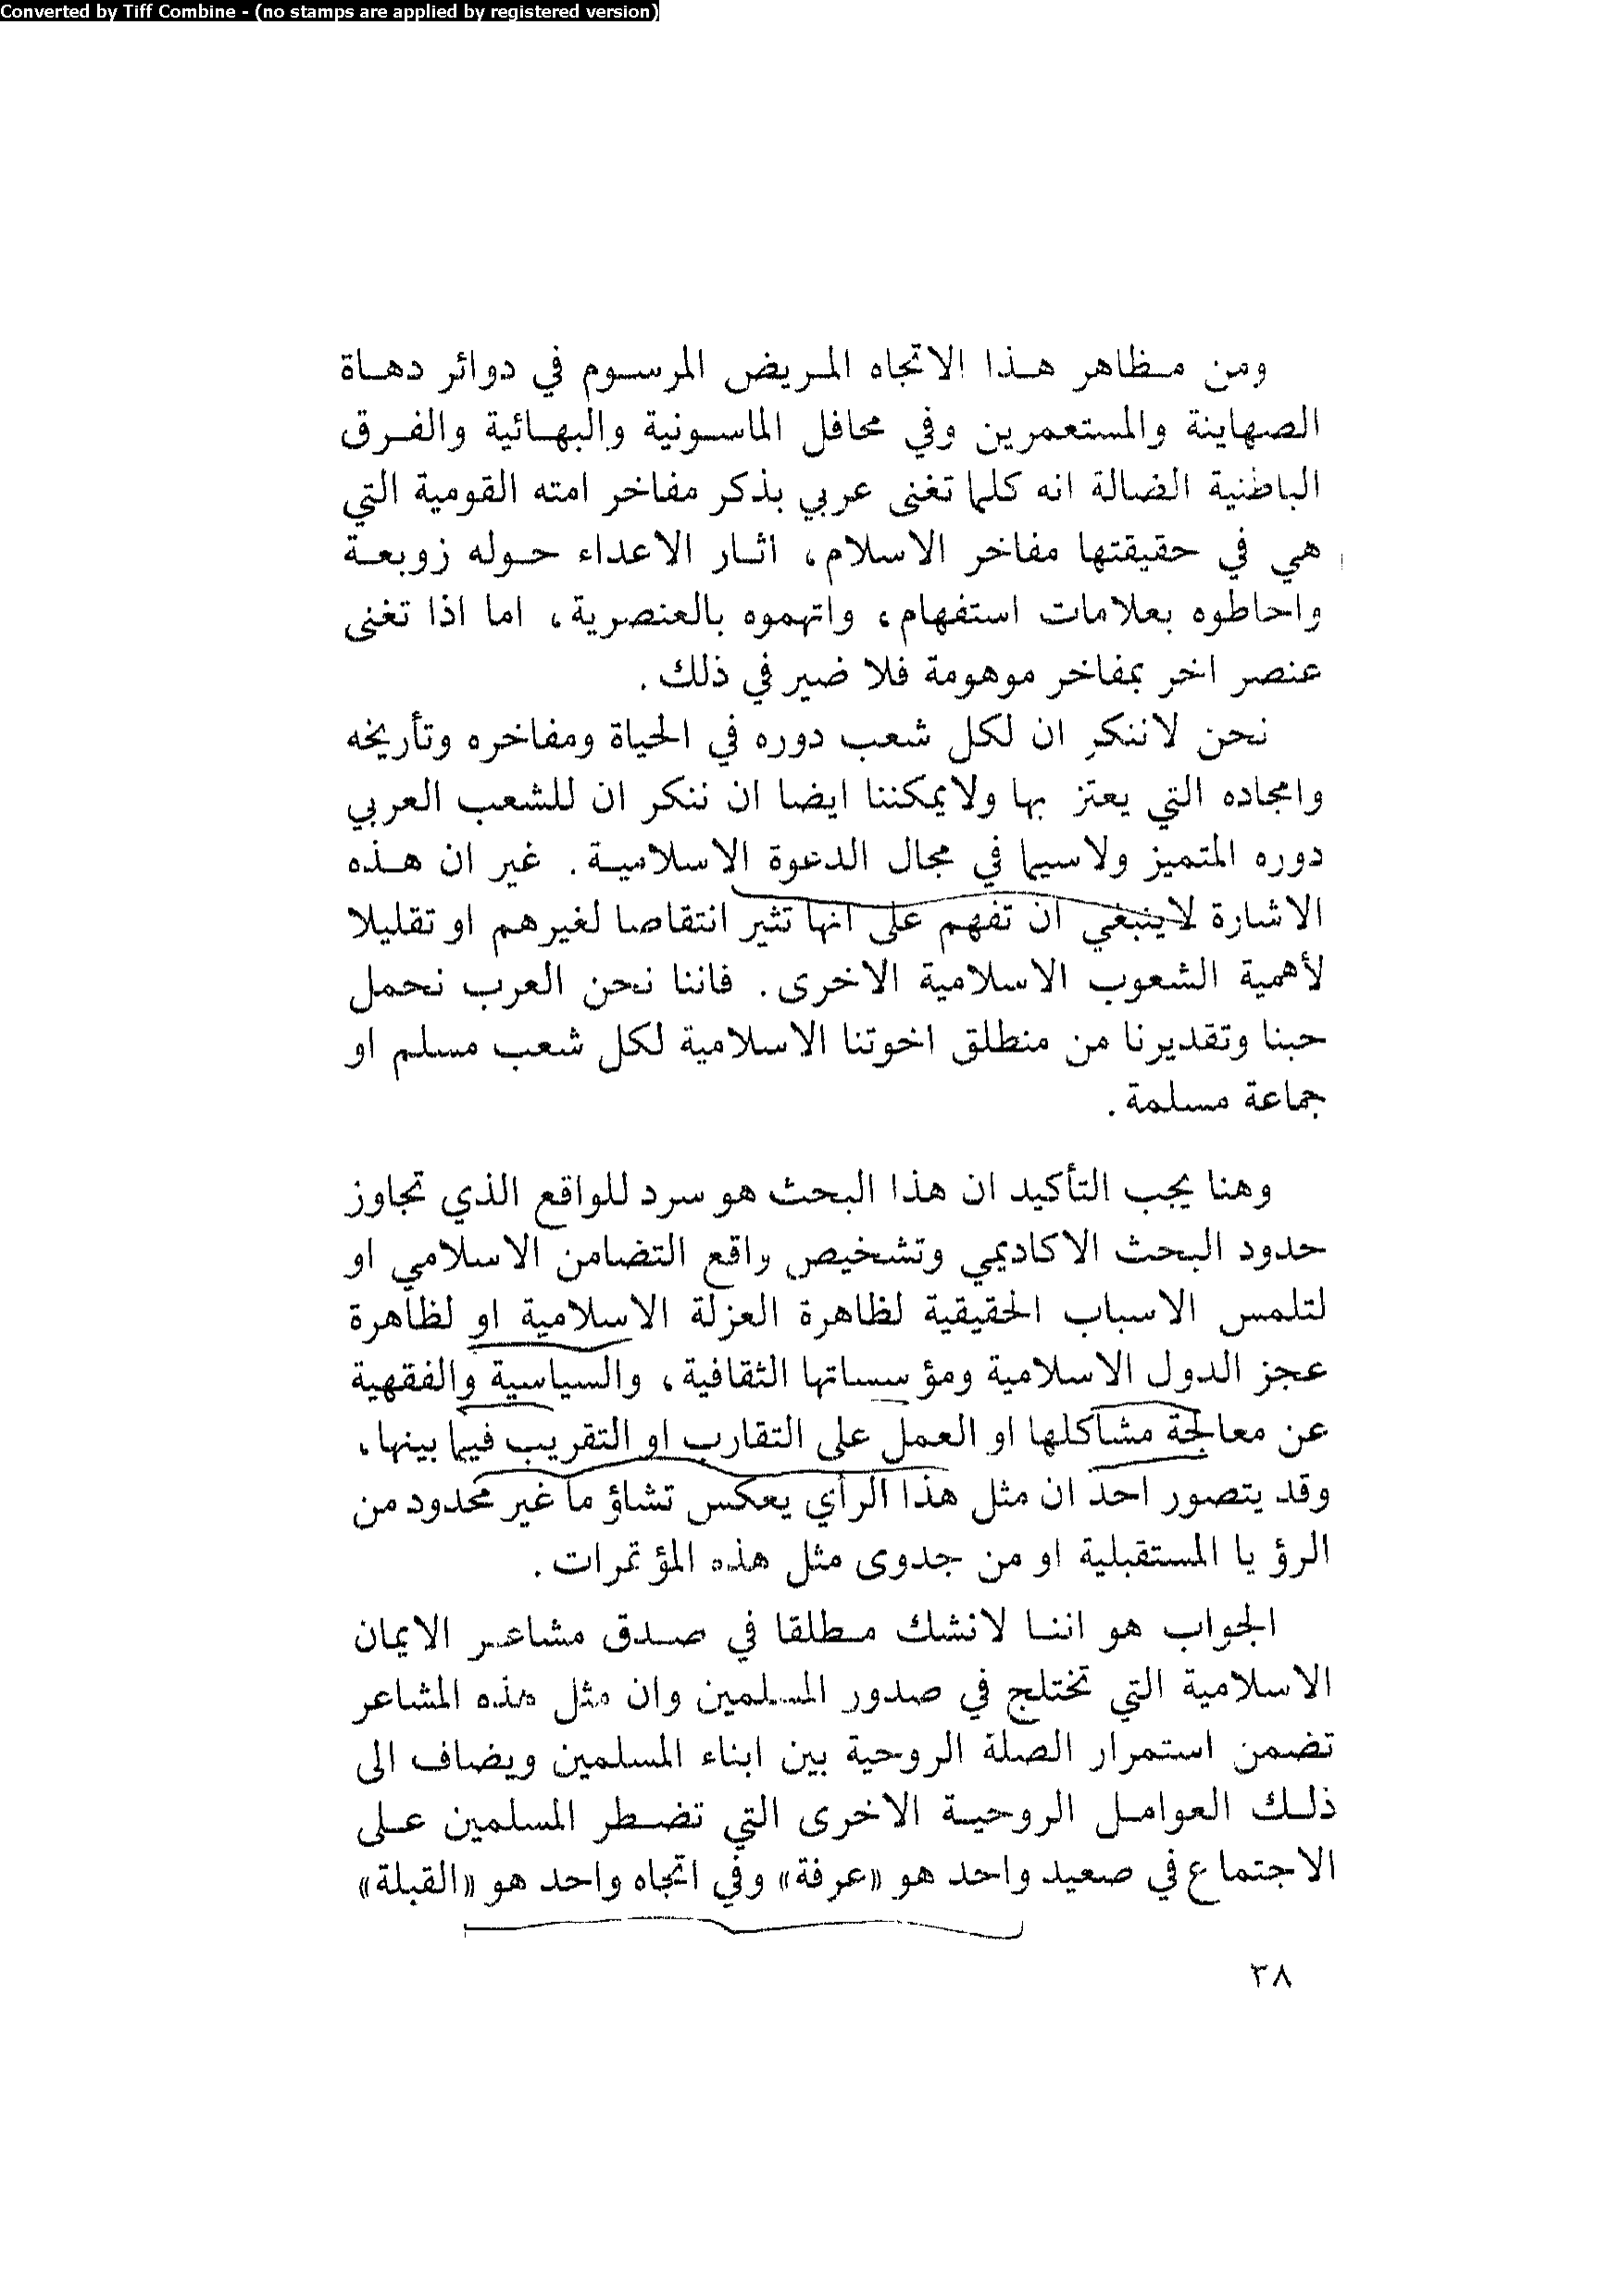 Converted by Tiff Combine - (no stamps are applied by registered version)
ومن مظاهر هذا الاتجاه المريض المرسوم في دوائر دهاة
الصهاينة والمستعمرين وفي محافل الماسونية والبهائية والفرق
الباطنية الضالة انه كلما تغنى عربي بذكر مفاخر امته القومية التي
هي في حقيقتها مفاخر الاسلام، اثار الاعداء حوله زوبعة
واحاطوه بعلامات استفهام، واتهموه بالعنصرية، اما اذا تغنى
عنصر اخر بمفاخر موهومة فلا ضير في ذلك.
نحن لاننكر ان لكل شعب دوره في الحياة ومفاخره وتأريخه
وامجاده التي يعتز بها ولايمكننا ايضا ان ننكر ان للشعب العربي
دوره المتميز ولاسيما في مجال الدعوة الاسلامية. غير ان هذه
الاشارة لاينبغي ان تفهم على انها تثير انتقاصا لغيرهم او تقليلا
لأهمية الشعوب الاسلامية الاخرى. فاننا نحن العرب نحمل
حبنا وتقديرنا من منطلق اخوتنا الاسلامية لكل شعب مسلم او
جماعة مسلمة.
وهنا يجب التأكيد ان هذا البحث هو سرد للواقع الذي تجاوز
حدود البحث الاكاديمي وتشخيص واقع التضامن الاسلامي او
لتلمس الاسباب الحقيقية لظاهرة العزلة الاسلامية او لظاهرة
عجز الدول الاسلامية ومؤسساتها الثقافية، والسياسية والفقهية
عن معالجة مشاكلها او العمل على التقارب او التقريب فيما بينها،
وقد يتصور احد ان مثل هذا الرأي يعكس تشاؤما غير محدود من
الرؤيا المستقبلية او من جدوى مثل هذه المؤتمرات.
الجواب هو اننا لانشك مطلقا في صدق مشاعر الايمان
الاسلامية التي تختلج في صدور المسلمين وان مثل هذه المشاعر
تضمن استمرار الصلة الروحية بين ابناء المسلمين ويضاف الى
ذلك العوامل الروحية الاخرى التي تضطر المسلمين على
الاجتماع في صعيد واحد هو «عرفة» وفي اتجاه واحد هو «القبلة»
٣٨